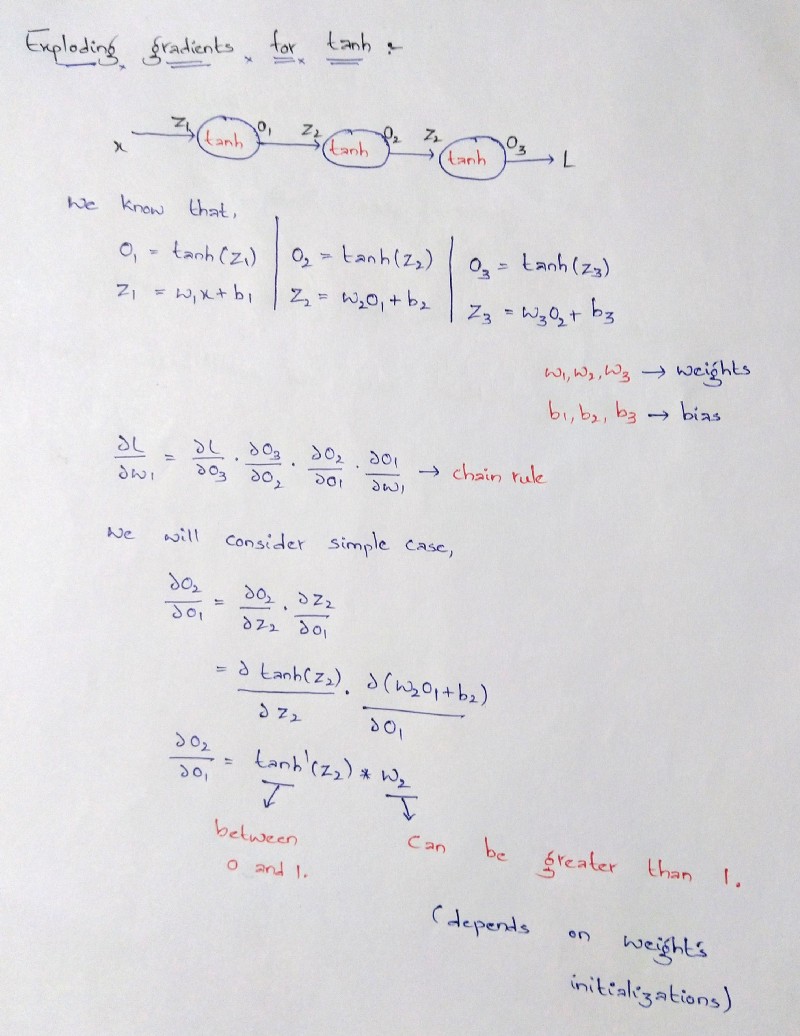 Exploding gradients for tanh :-
x Z₁ tanh O₁ Z₂ tanh O₂ Z₂ tanh O₃ L
We know that,
O₁ = tanh(Z₁) | O₂ = tanh(Z₂) | O₃ = tanh(Z₃)
Z₁ = w₁x + b₁ | Z₂ = w₂O₁ + b₂ | Z₃ = w₃O₂ + b₃
w₁, w₂, w₃ → weights
b₁, b₂, b₃ → bias
∂L/∂w₁ = ∂L/∂O₃ · ∂O₃/∂O₂ · ∂O₂/∂O₁ · ∂O₁/∂w₁ → chain rule
We will consider simple case,
∂O₂/∂O₁ = ∂O₂/∂Z₂ · ∂Z₂/∂O₁
= ∂ tanh(Z₂)/∂Z₂ · ∂(w₂O₁+b₂)/∂O₁
∂O₂/∂O₁ = tanh'(Z₂) * w₂
between can be greater than 1.
0 and 1.
(depends on weight's
initializations)